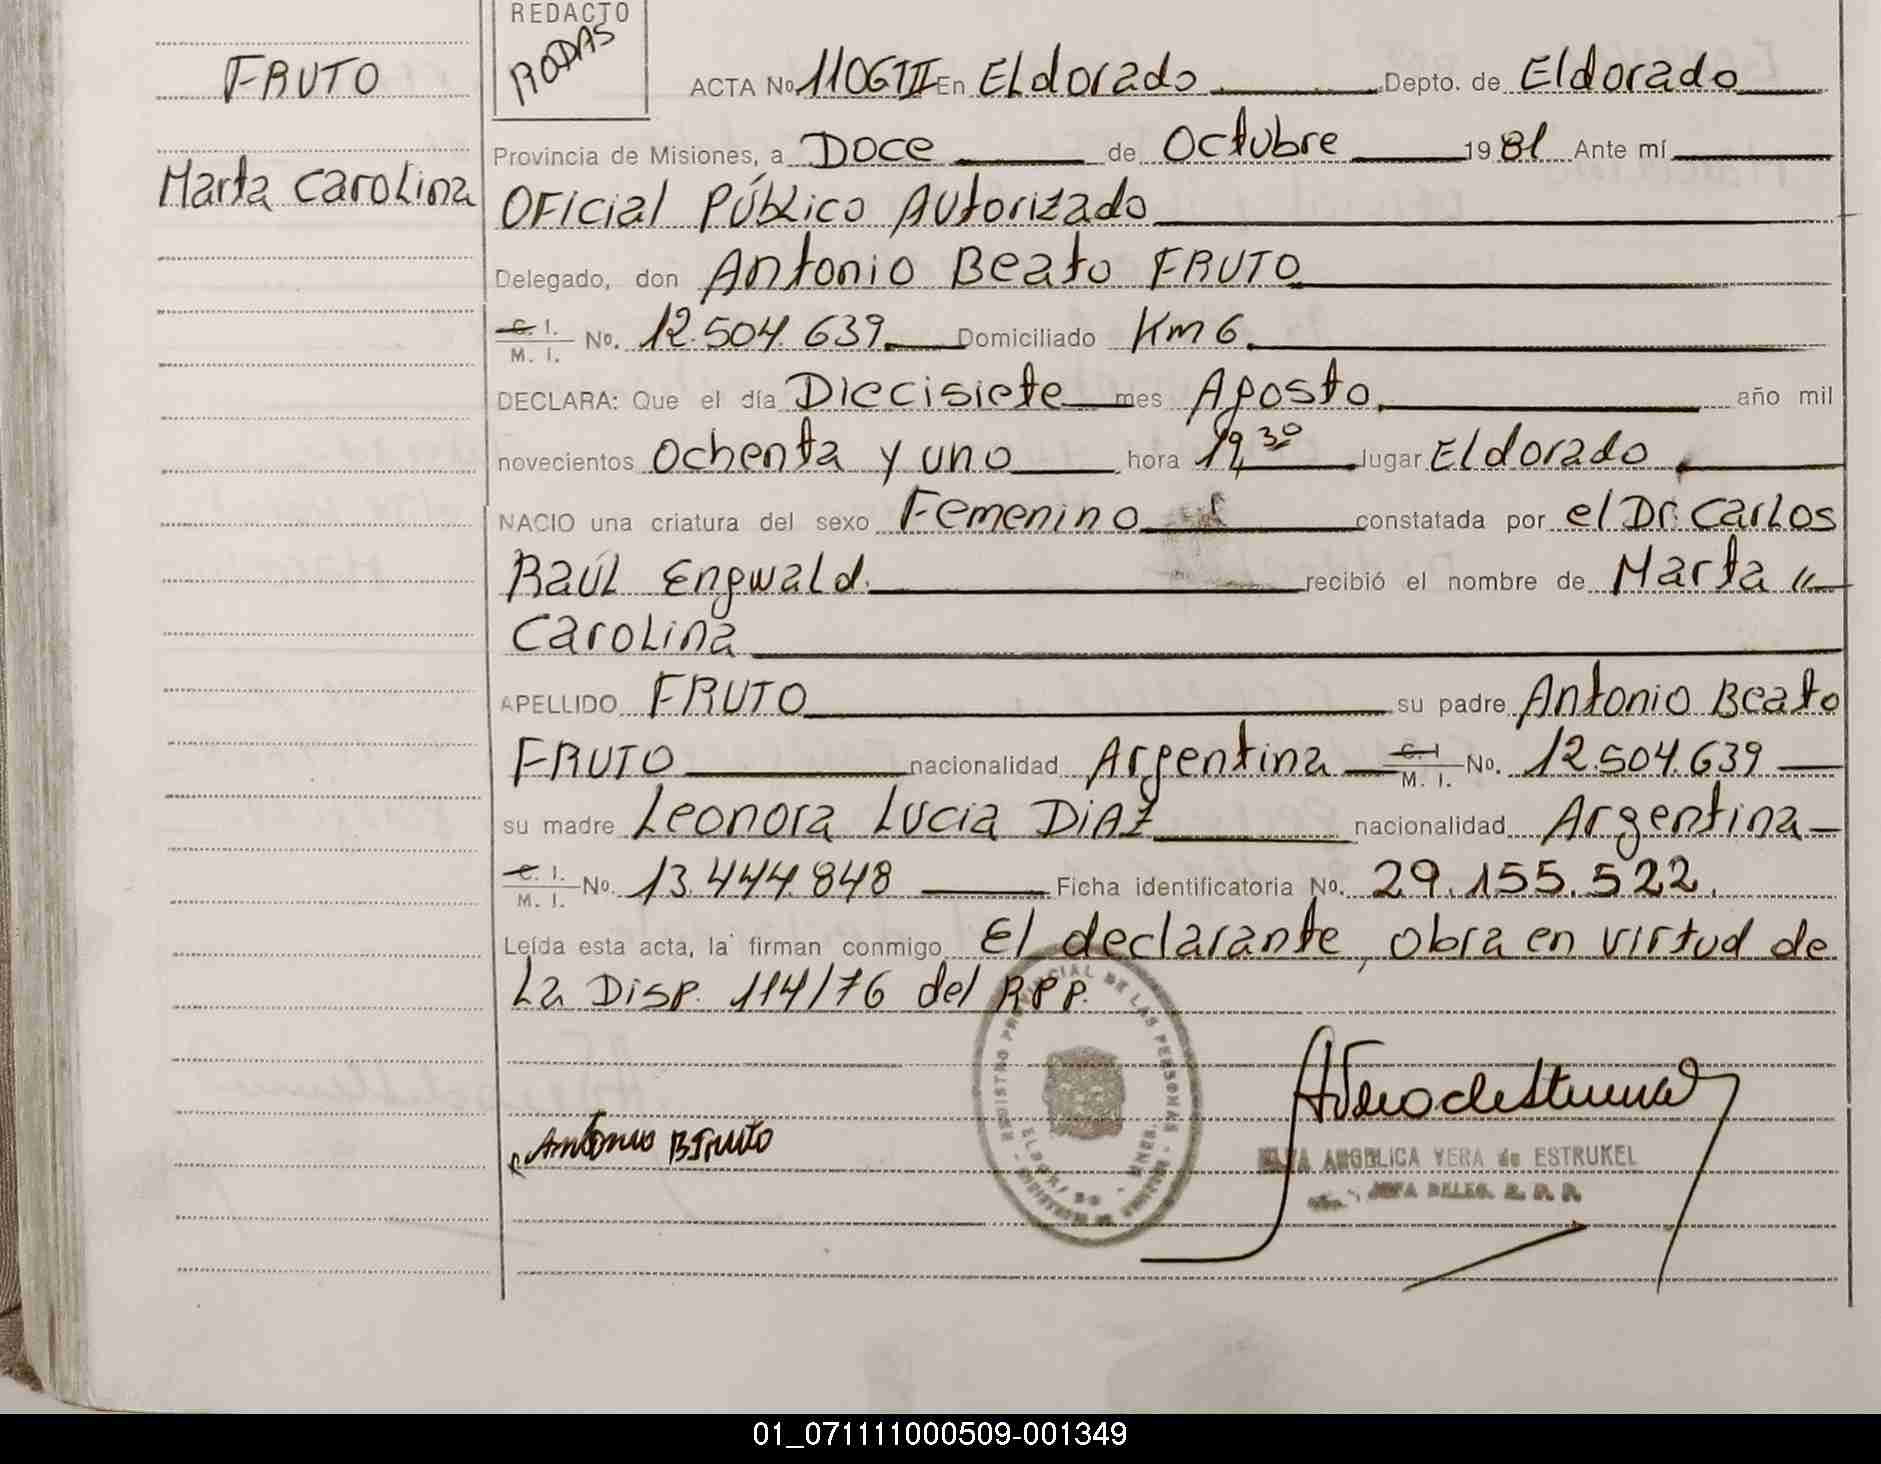 REDACTO
RODAS
FRUTO
Marta Carolina
ACTA No 1106TII En Eldorado Depto. de Eldorado
Provincia de Misiones, a Doce de Octubre 19 81 Ante mí
Oficial Público Autorizado
Delegado, don Antonio Beato FRUTO
C. I. M. I. No. 12.504.639 Domiciliado Km 6
DECLARA: Que el día Diecisiete mes Agosto año mil
novecientos Ochenta y uno hora 19,30 lugar Eldorado
NACIO una criatura del sexo Femenino constatada por el Dr. Carlos
Raúl Engwald. recibió el nombre de Marta "
Carolina
APELLIDO FRUTO su padre Antonio Beato
FRUTO nacionalidad Argentina C. I M. I. No. 12.504.639
su madre Leonora Lucia DIAZ nacionalidad Argentina
C. I. M. I. No. 13.444.848 Ficha identificatoria No. 29.155.522.
Leída esta acta, la firman conmigo El declarante, obra en virtud de
La Disp. 114/76 del RPP.
REGISTRO PROVINCIAL DE LAS PERSONAS
Antonio B Fruto
ANGELICA VERA de ESTRUKEL
JEFA DELEG. R. P. P.
01_071111000509-001349